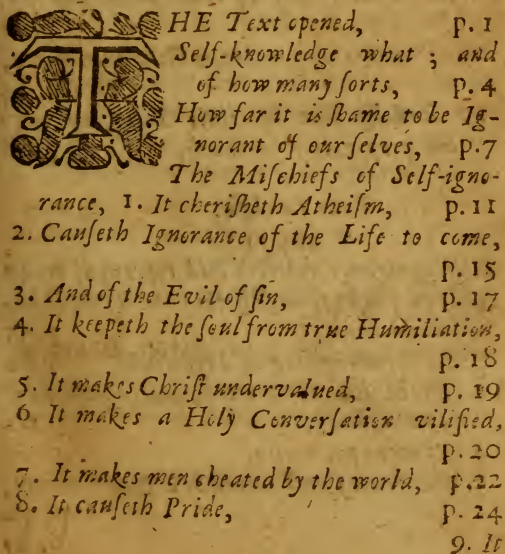 THE Text opened, p. 1
Self-knowledge what ; and
of how many ſorts, p. 4
How far it is ſhame to be Ig-
norant of our ſelves, p. 7
The Miſchiefs of Self-igno-
rance, 1. It cheriſheth Atheiſm, p. 11
2. Cauſeth Ignorance of the Life to come,
p. 15
3. And of the Evil of ſin, p. 17
4. It keepeth the ſoul from true Humiliation,
p. 18
5. It makes Chriſt undervalued, p. 19
6. It makes a Holy Converſation vilified,
p. 20
7. It makes men cheated by the world, p. 22
8. It cauſeth Pride, p. 24
9. It